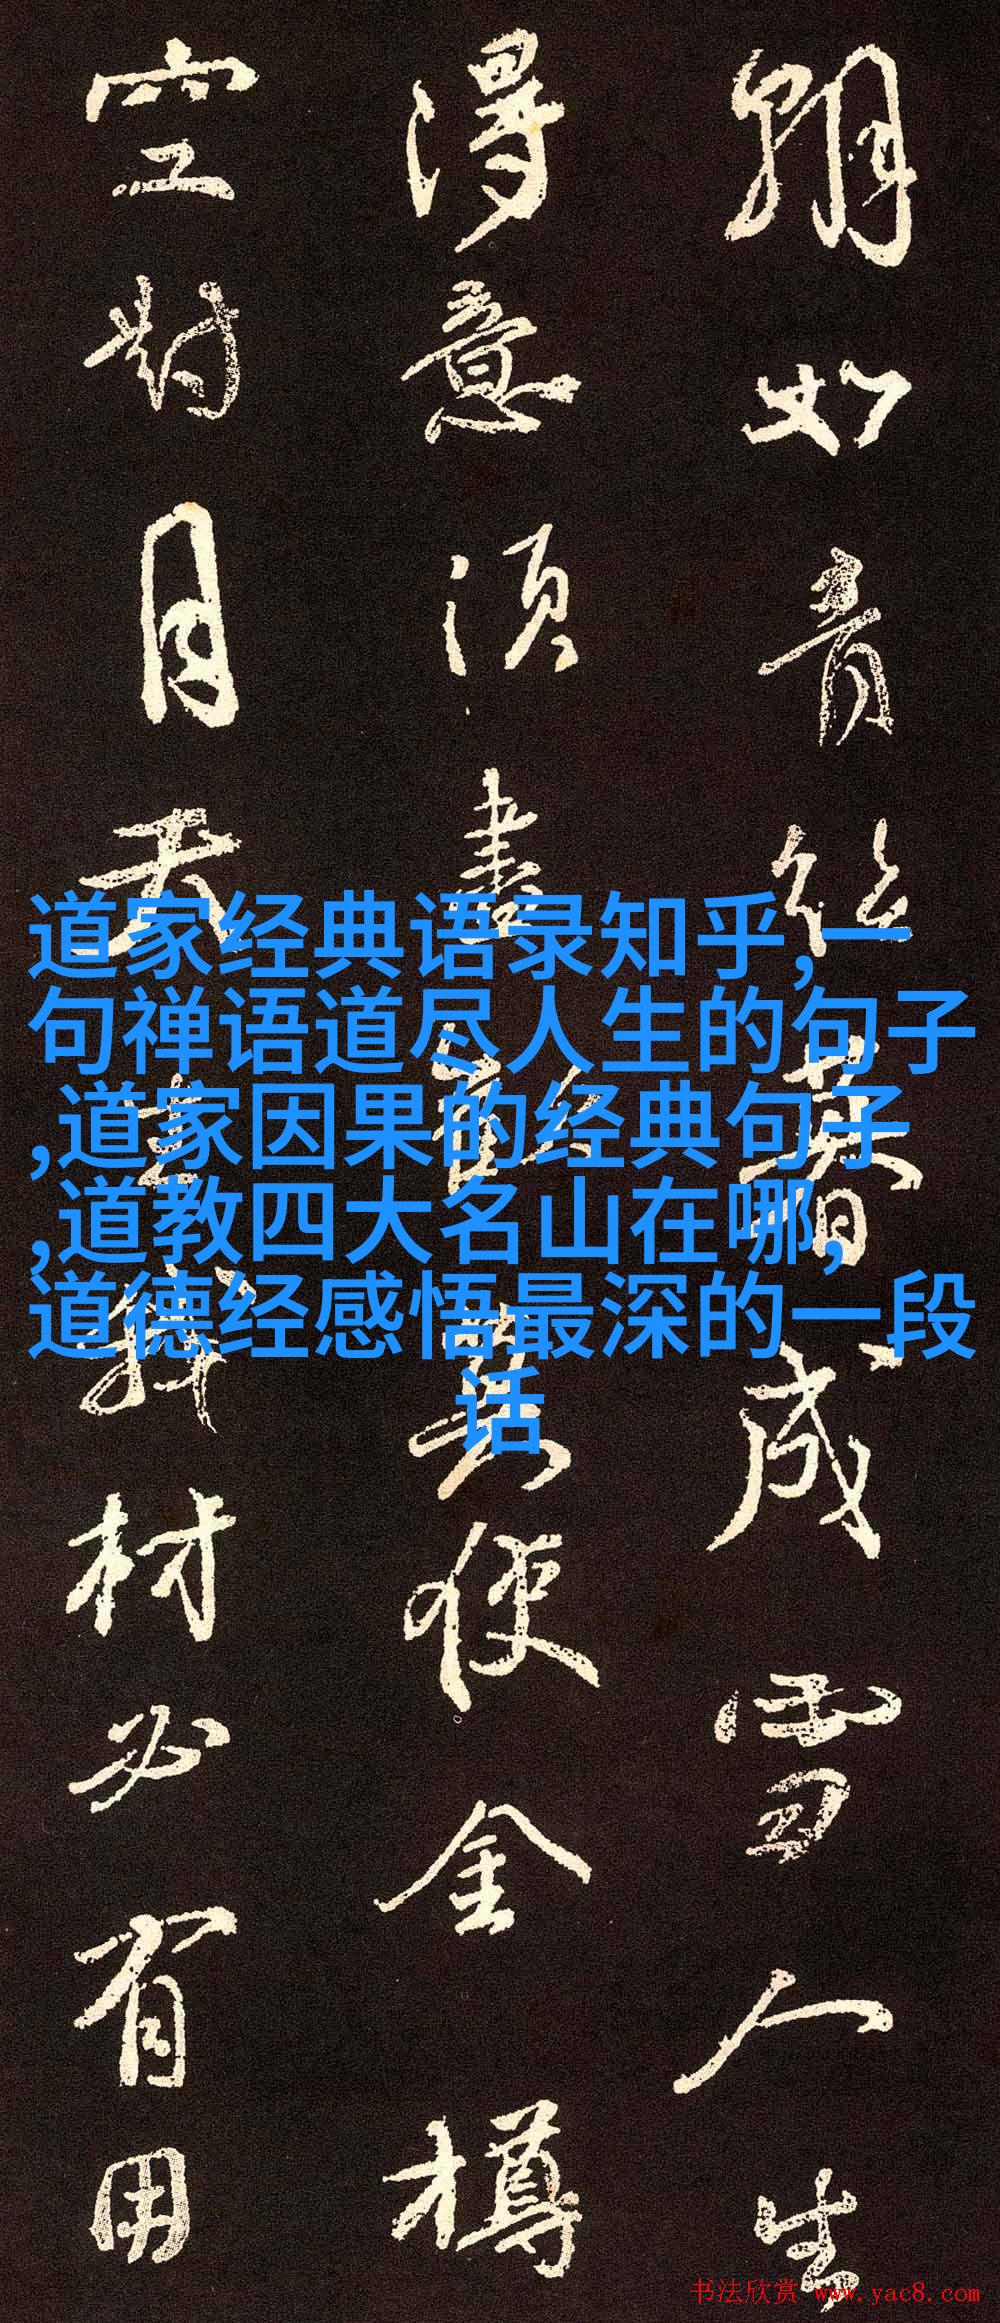 朝如青絲暮成雪人生
得意須盡歡莫使金樽
空對月天生我材必有用
道家经典语录知乎,一
句禅语道尽人生的句子
,道家因果的经典句子
,道教四大名山在哪,
道德经感悟最深的一段
话
书法欣赏 www.yac8.com